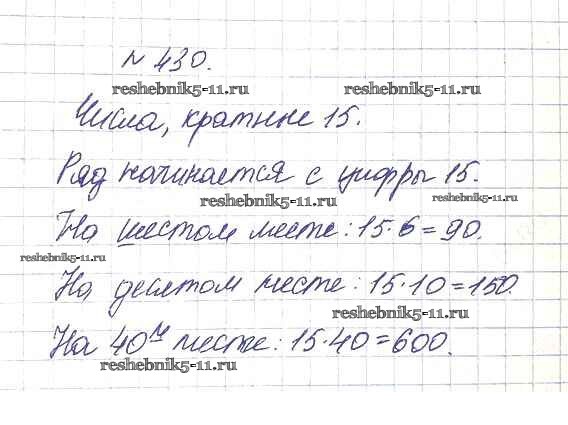 № 430.
reshebnik5-11.ru reshebnik5-11.ru
Числа, кратные 15.
Ряд начинается с цифры 15.
reshebnik5-11.ru reshebnik5-11.ru
На шестом месте: 15·6=90.
reshebnik5-11.ru
На десятом месте: 15·10=150.
reshebnik5-11.ru
На 40м месте: 15·40=600.
reshebnik5-11.ru